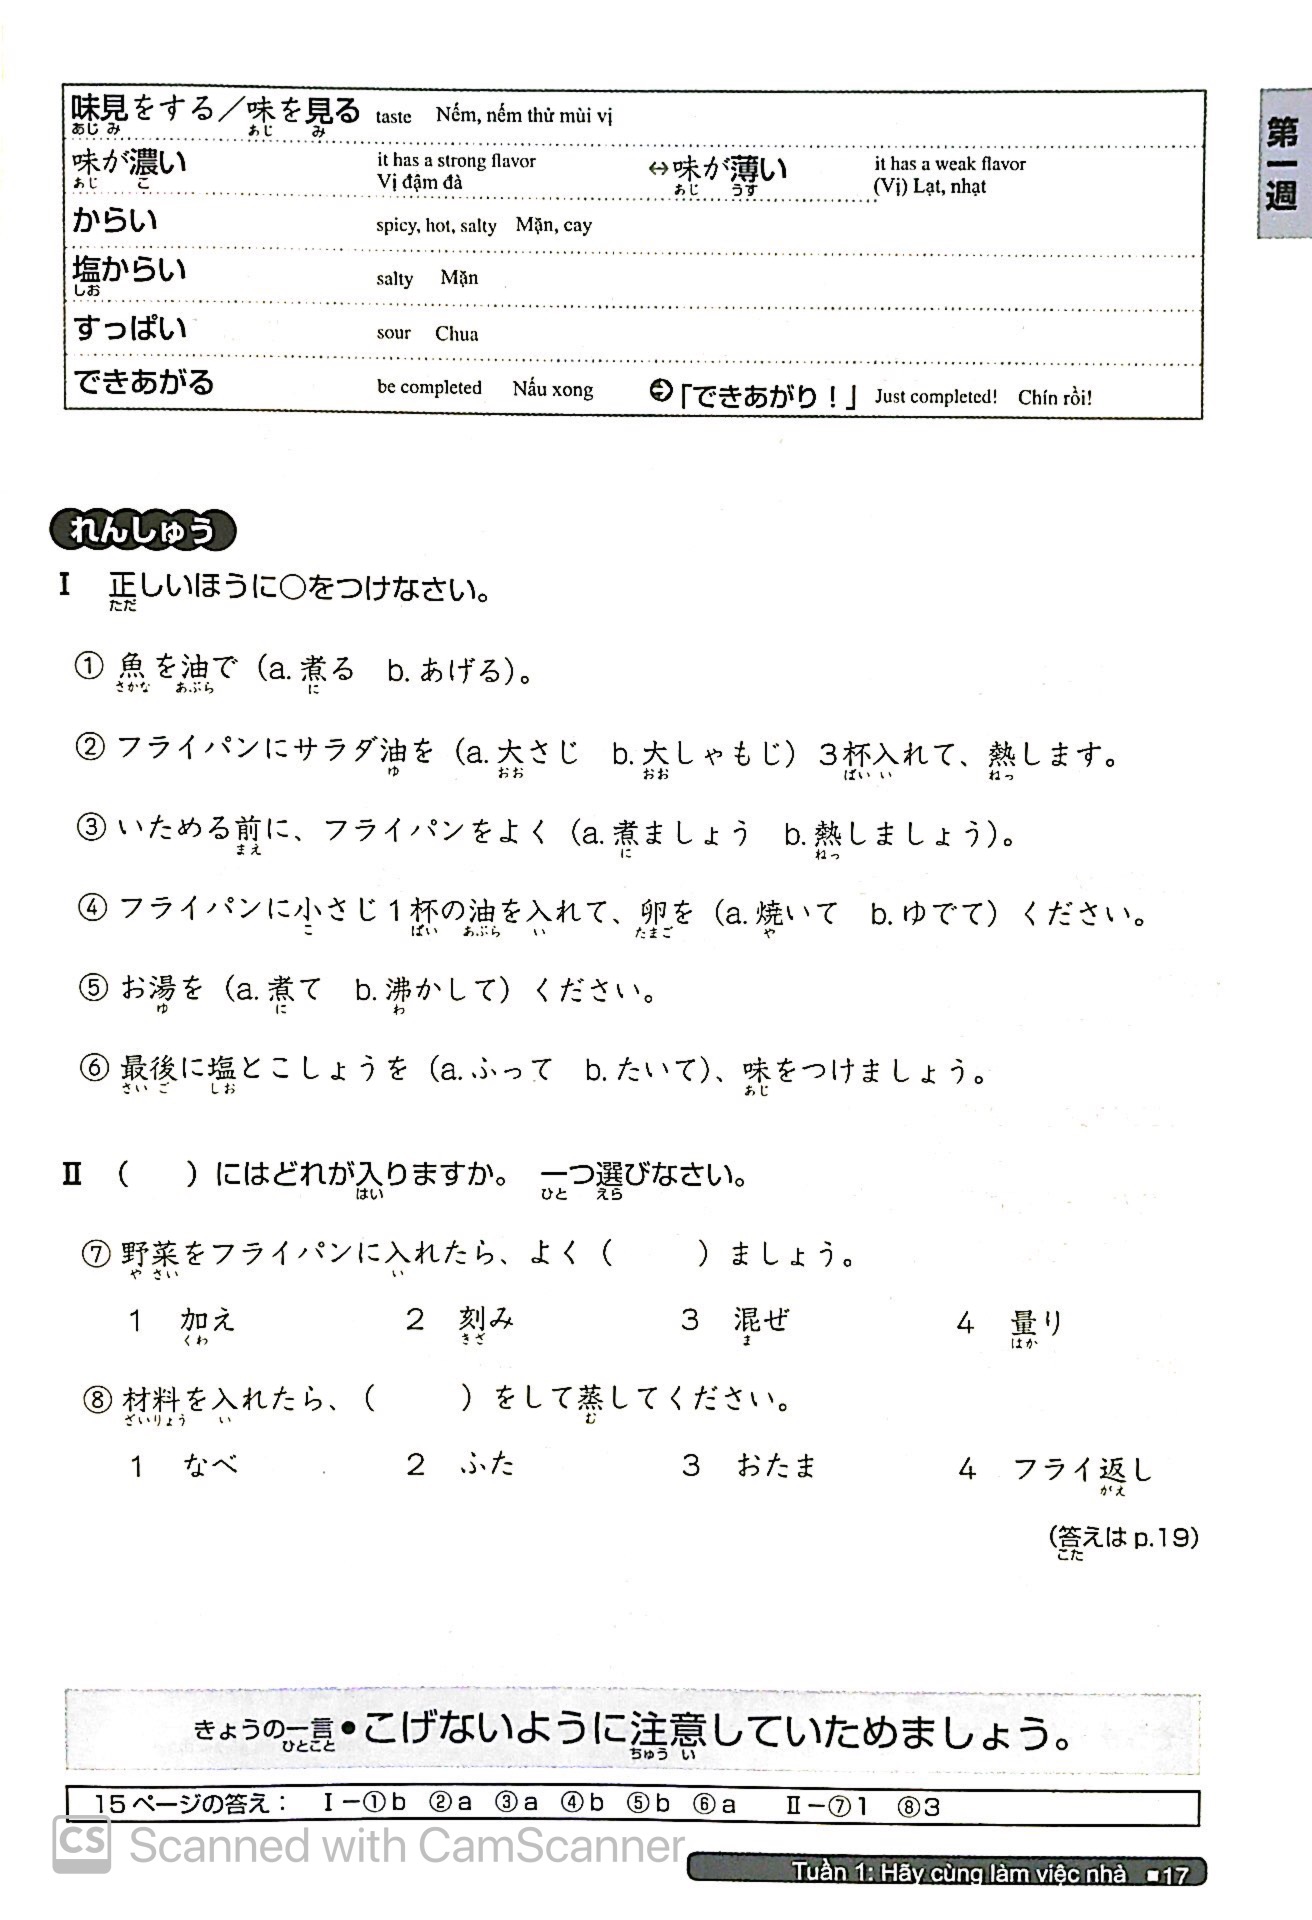 味見をする／味を見る taste Nếm, nếm thử mùi vị
あじ み あじ み
味が濃い it has a strong flavor Vị đậm đà ↔味が薄い it has a weak flavor (Vị) Lạt, nhạt
あじ こ あじ うす
からい spicy, hot, salty Mặn, cay
塩からい salty Mặn
しお
すっぱい sour Chua
できあがる be completed Nấu xong ➲「できあがり！」 Just completed! Chín rồi!
第一週
れんしゅう
I 正しいほうに○をつけなさい。
ただ
① 魚を油で（a. 煮る b. あげる）。
さかな あぶら に
② フライパンにサラダ油を（a. 大さじ b. 大しゃもじ）3杯入れて、熱します。
ゆ おお おお ばい い ねっ
③ いためる前に、フライパンをよく（a. 煮ましょう b. 熱しましょう）。
まえ に ねっ
④ フライパンに小さじ1杯の油を入れて、卵を（a. 焼いて b. ゆでて）ください。
こ ばい あぶら い たまご や
⑤ お湯を（a. 煮て b. 沸かして）ください。
ゆ に わ
⑥ 最後に塩とこしょうを（a. ふって b. たいて）、味をつけましょう。
さい ご しお あじ
II （ ）にはどれが入りますか。 一つ選びなさい。
はい ひと えら
⑦ 野菜をフライパンに入れたら、よく（ ）ましょう。
や さい い
1 加え 2 刻み 3 混ぜ 4 量り
くわ きざ ま はか
⑧ 材料を入れたら、（ ）をして蒸してください。
ざいりょう い む
1 なべ 2 ふた 3 おたま 4 フライ返し
がえ
（答えは p.19）
こた
きょうの一言●こげないように注意していためましょう。
ひとこと ちゅう い
15ページの答え： I－①b ②a ③a ④b ⑤b ⑥a II－⑦1 ⑧3
CS Scanned with CamScanner
Tuần 1: Hãy cùng làm việc nhà ■17